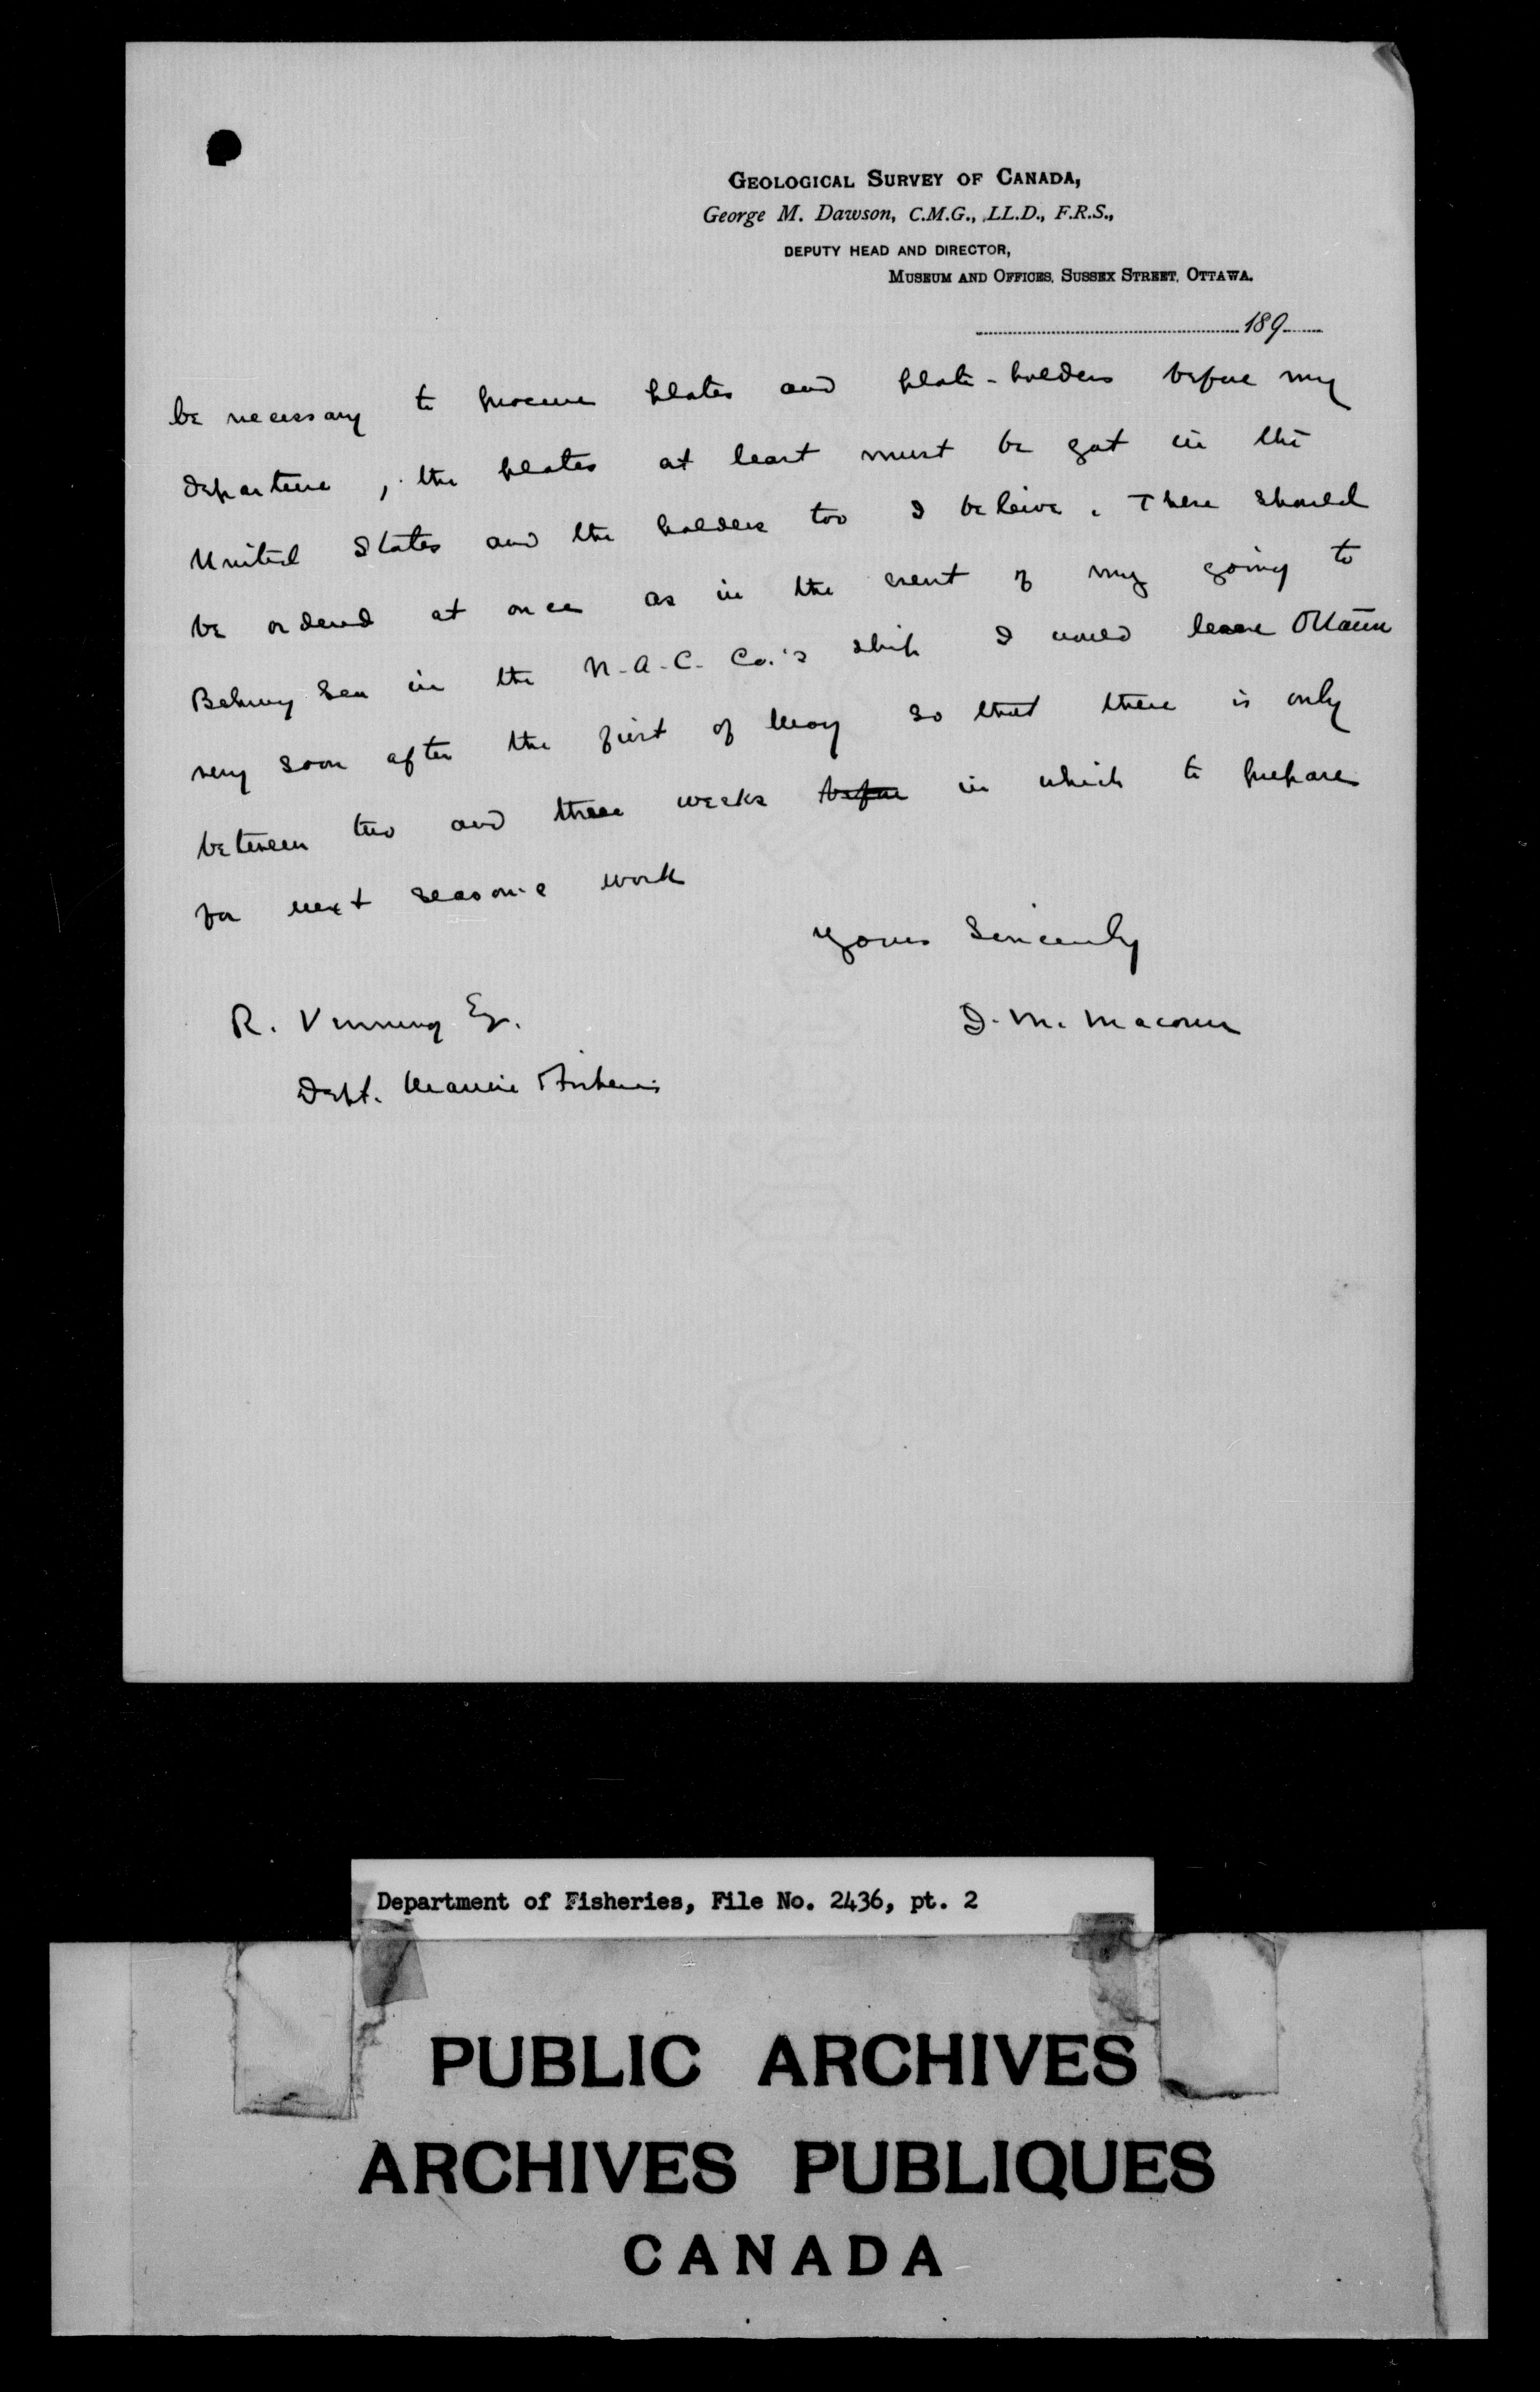 GEOLOGICAL SURVEY OF CANADA,
George M. Dawson, C.M.G., LL.D., F.R.S.,
DEPUTY HEAD AND DIRECTOR,
MUSEUM AND OFFICES, SUSSEX STREET, OTTAWA.
189
be necessary to procure plates and plate-holders before my
departure, the plates at least must be got in the
United States and the holders too I beleive. These should
be ordered at once as in the event of my going to
Behring Sea in the N.A.C. Co.'s ship I would leave Ottawa
very soon after the first of May so that there is only
between two and three weeks before in which to prepare
for next season's work
Yours Sincerely
R. Venning Eq.
D. M. Macoun
Dept. Marine Fisheries
Department of Fisheries, File No. 2436, pt. 2
PUBLIC ARCHIVES
ARCHIVES PUBLIQUES
CANADA